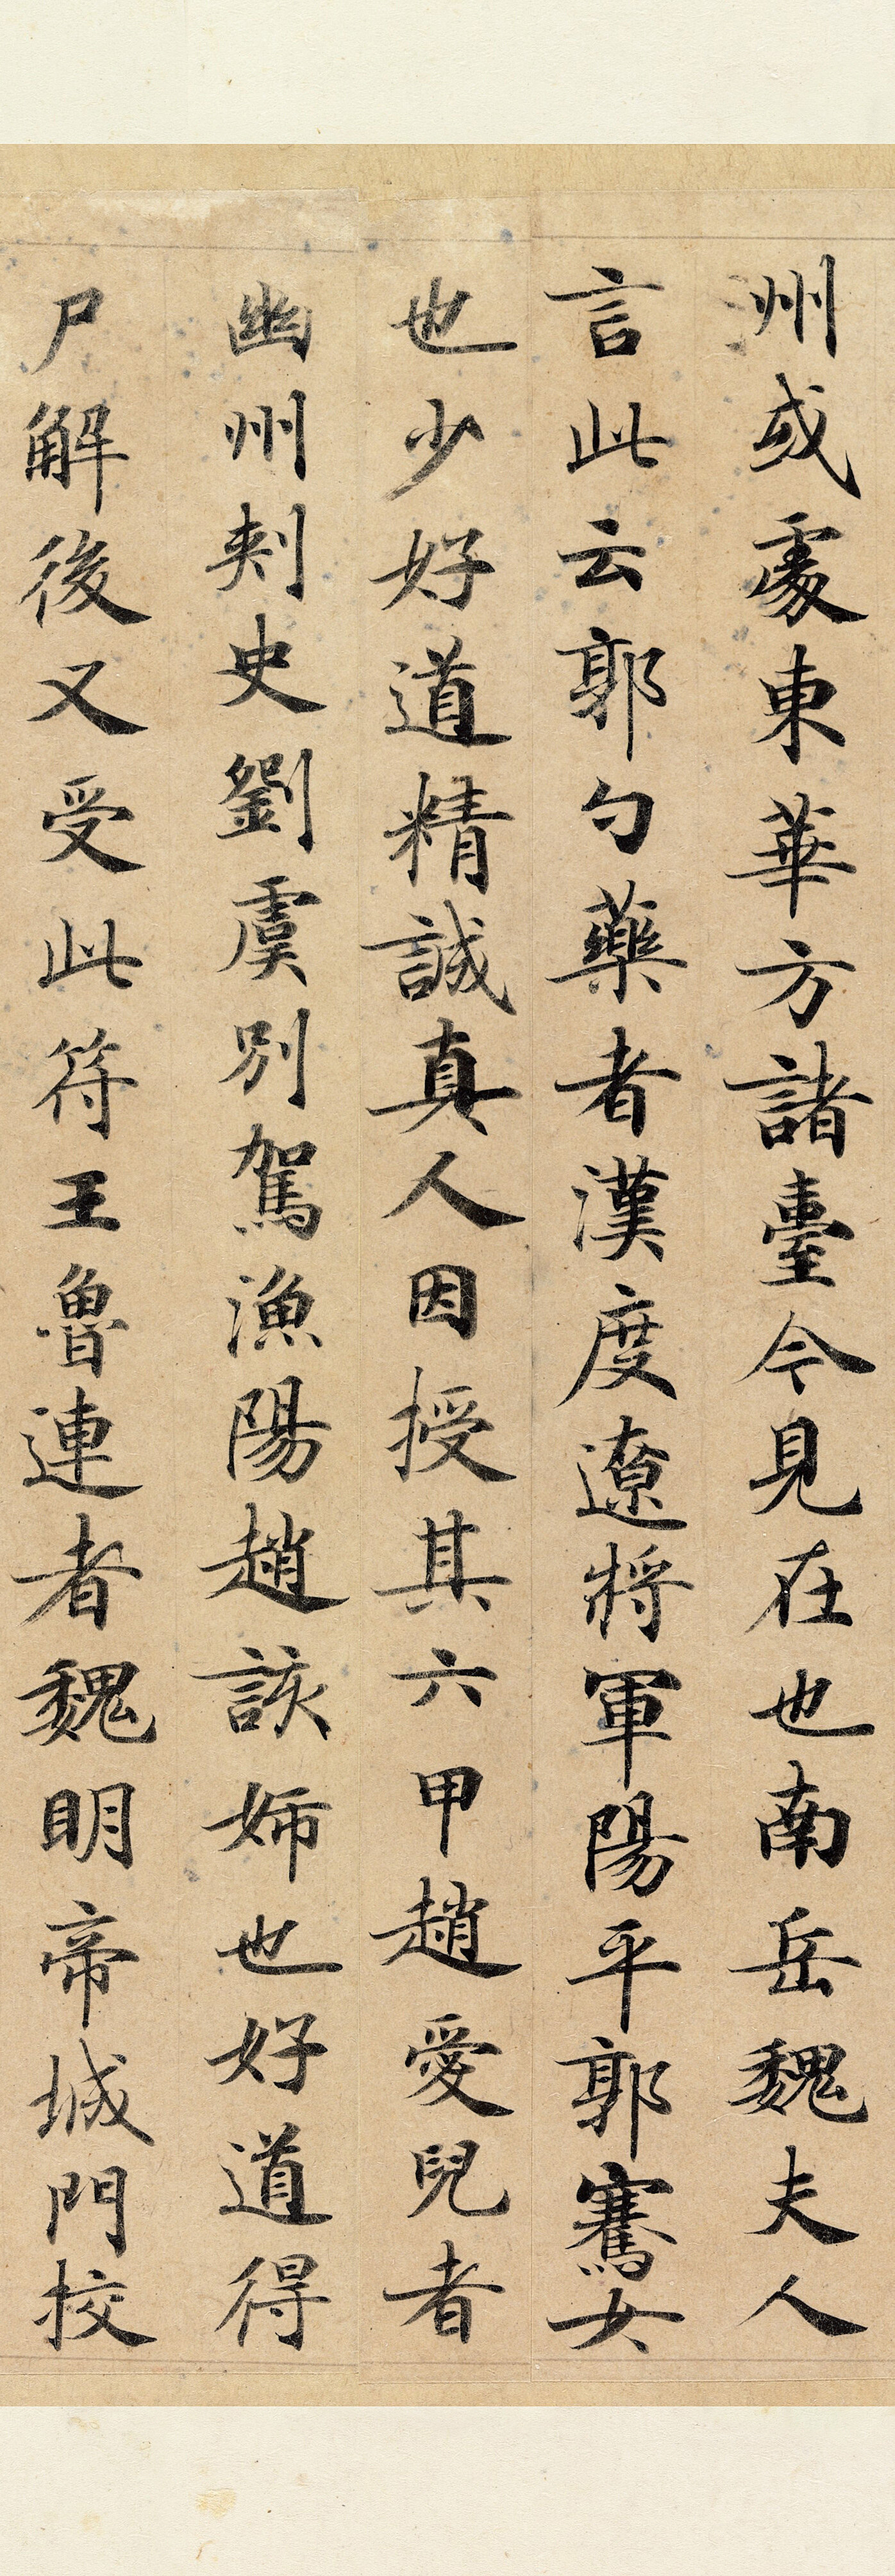 州或處東華方諸臺今見在也南岳魏夫人
言此云郭勺藥者漢度遼將軍陽平郭騫女
也少好道精誠真人因授其六甲趙愛兒者
幽州刾史劉虞別駕漁陽趙該姊也好道得
尸解後又受此符王魯連者魏明帝城門挍